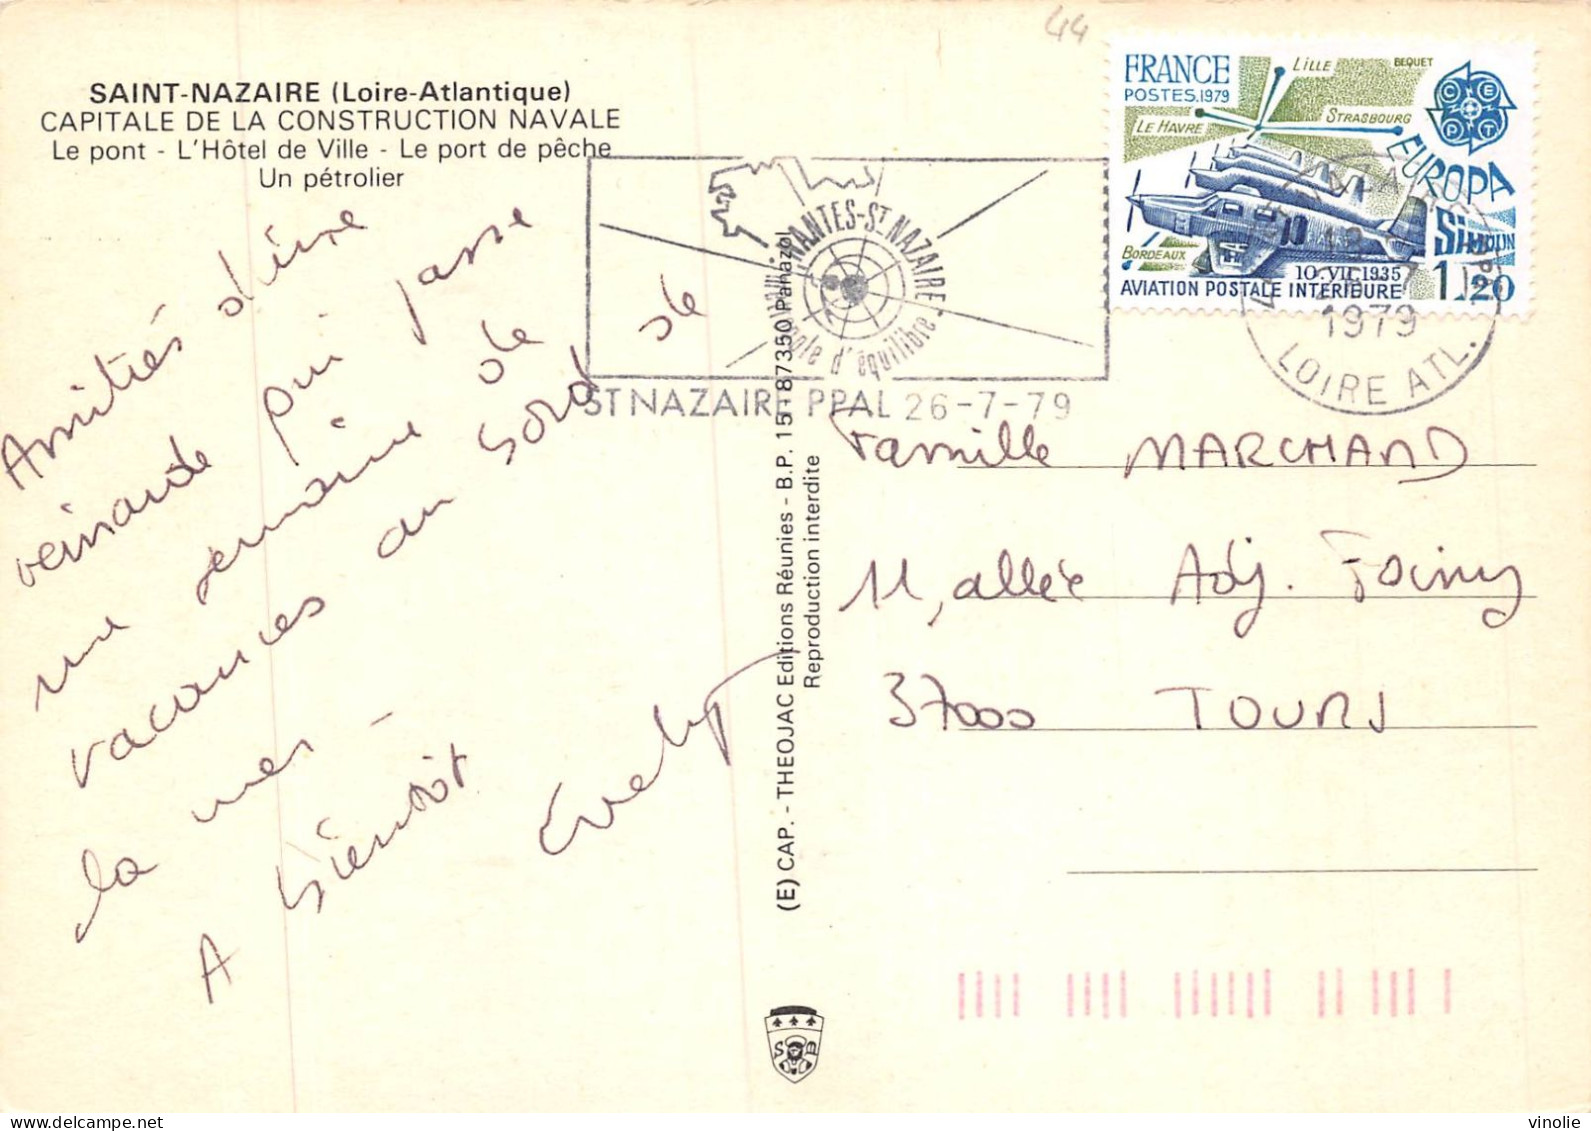 44
SAINT-NAZAIRE (Loire-Atlantique)
CAPITALE DE LA CONSTRUCTION NAVALE
Le pont - L'Hôtel de Ville - Le port de pêche
Un pétrolier
FRANCE
POSTES.1979
LILLE
BEQUET
LE HAVRE
STRASBOURG
CEPT
EUROPA
SIMOUN
BORDEAUX
10.VII.1935
1,20
AVIATION POSTALE INTÉRIEURE
NANTES-ST NAZAIRE
métropole d'équilibre
ST NAZAIRE PPAL 26-7-79
18 H
26-7
1979
LOIRE ATL.
Amitiés d'une
veinarde qui passe
une semaine de
vacances au bord de
la mer -
A bientôt
Evelyne
(E) CAP. - THEOJAC Editions Réunies - B.P. 15 - 87350 Panazol
Reproduction interdite
Famille MARCHAND
11, allée Adj. Foiny
37000 TOURS
S B
delcampe.net
vinolie